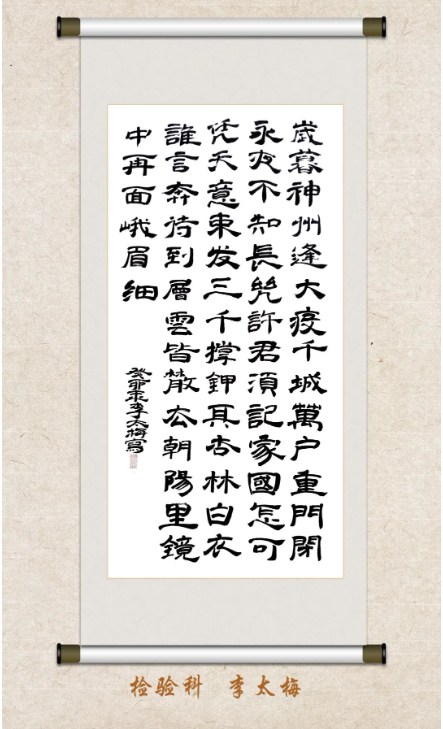 歲暮神州逢大疫千城萬户重門閉
永夜不知長幾許君須記家國怎可
凭天意束发三千撐鉀具杏林白衣
誰言弃待到層雲皆散去朝陽里鏡
中再画峨眉细
癸卯年李太梅寫
检验科 李太梅